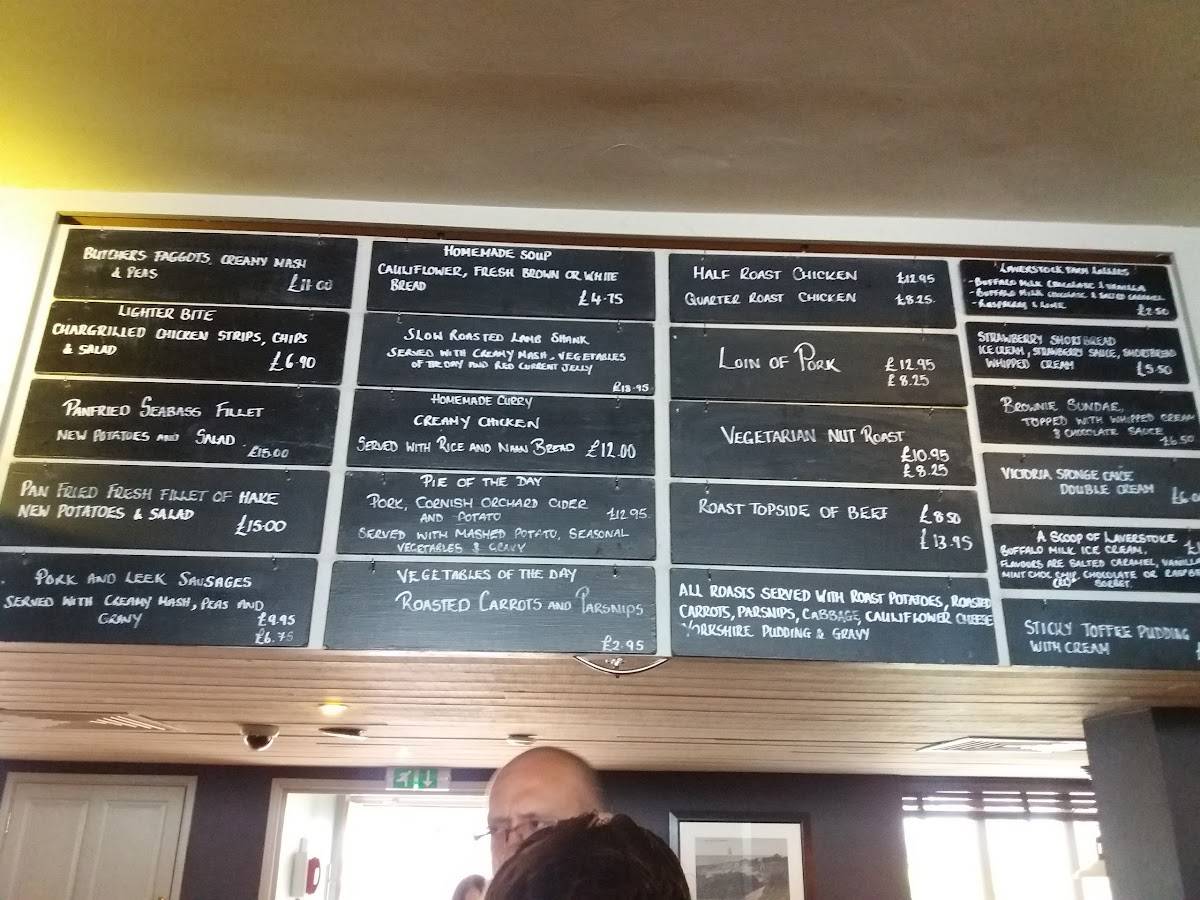 BUTCHERS FAGGOTS, CREAMY MASH
& PEAS
£11.00
LIGHTER BITE
CHARGRILLED CHICKEN STRIPS, CHIPS
& SALAD
£6.90
PANFRIED SEABASS FILLET
NEW POTATOES AND SALAD
£15.00
PAN FRIED FRESH FILLET OF HAKE
NEW POTATOES & SALAD
£15.00
PORK AND LEEK SAUSAGES
SERVED WITH CREAMY MASH, PEAS AND
GRAVY
£9.95
£6.75
HOMEMADE SOUP
CAULIFLOWER, FRESH BROWN OR WHITE
BREAD
£4.75
SLOW ROASTED LAMB SHANK
SERVED WITH CREAMY MASH, VEGETABLES
OF THE DAY AND RED CURRENT JELLY
HOMEMADE CURRY
CREAMY CHICKEN
SERVED WITH RICE AND NAAN BREAD £12.00
PIE OF THE DAY
PORK, CORNISH ORCHARD CIDER
AND POTATO £12.95
SERVED WITH MASHED POTATO, SEASONAL
VEGETABLES & GRAVY
VEGETABLES OF THE DAY
ROASTED CARROTS AND PARSNIPS
£2.95
HALF ROAST CHICKEN £12.95
QUARTER ROAST CHICKEN £8.25
LOIN OF PORK £12.95
£8.25
VEGETARIAN NUT ROAST
£10.95
£8.25
ROAST TOPSIDE OF BEEF £8.50
£13.95
ALL ROASTS SERVED WITH ROAST POTATOES, ROASTED
CARROTS, PARSNIPS, CABBAGE, CAULIFLOWER CHEESE
YORKSHIRE PUDDING & GRAVY
LAVERSTOCK FARM LOLLIES
- BUFFALO MILK CHOCOLATE & VANILLA
- BUFFALO MILK CHOCOLATE & SALTED CARAMEL
- RASPBERRY & LIME
£2.50
STRAWBERRY SHORTBREAD
ICE CREAM, STRAWBERRY SAUCE, SHORTBREAD
WHIPPED CREAM £5.50
BROWNIE SUNDAE,
TOPPED WITH WHIPPED CREAM
& CHOCOLATE SAUCE
£6.50
VICTORIA SPONGE CAKE
DOUBLE CREAM
A SCOOP OF LAVERSTOKE
BUFFALO MILK ICE CREAM,
FLAVOURS ARE SALTED CARAMEL, VANILLA
MINT CHOC CHIP, CHOCOLATE OR
SORBET.
STICKY TOFFEE PUDDING
WITH CREAM